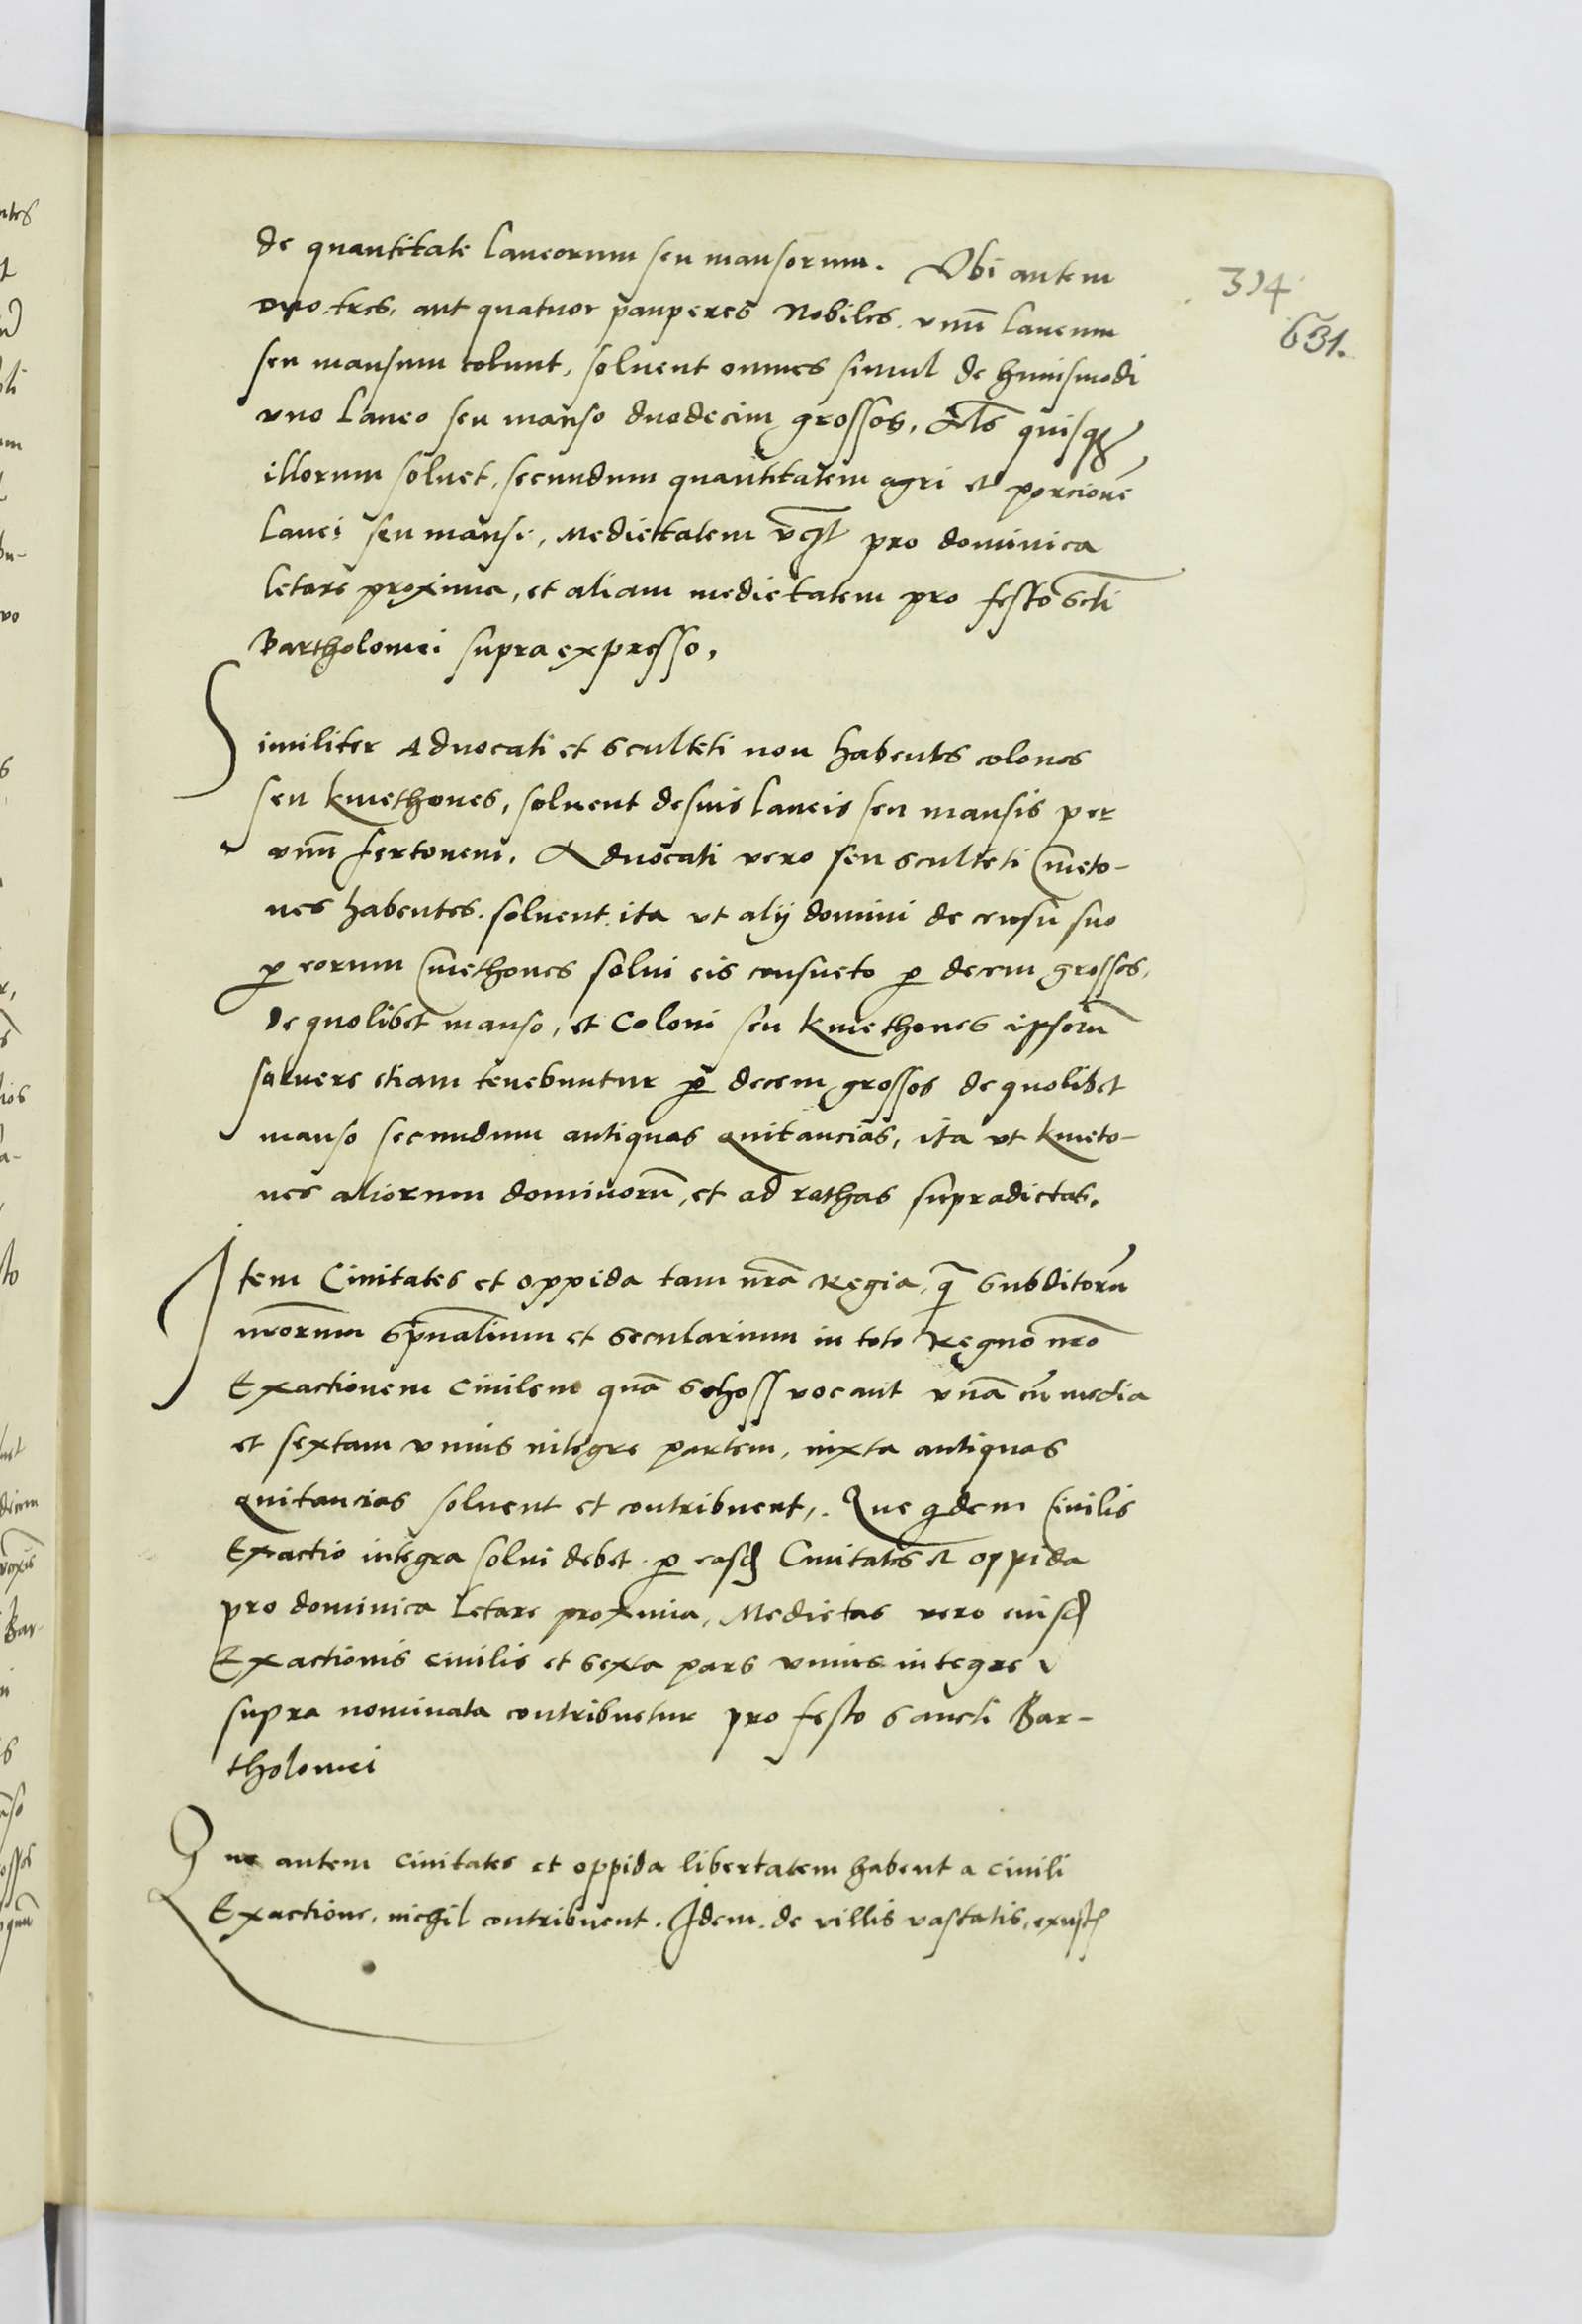 de quantitate laneorum seu mansorum. Vbi autem
duo. tres. aut quatuor pauperes Nobiles. vnū laneum
seu mansum colunt, soluent omnes simul de huiusmodi
vno laneo seu manso duodecim grossos, Als quisqȝ
illorum soluet, secundum quantitatem agri et porcionē
lanei seu mansi, Medietatem vꝫ pro dominica
letare proxima, et aliam medietatem pro festo scti
Bartholomei supra expresso,
Similiter Aduocati et sculteti non habentes colonos
seu kmethones, soluent de suis laneis seu mansis per
vnū fertonem. Aduocati vero seu sculteti Cmeto-
nes habentes. soluent. ita vt alij domini de censu suo
ꝑ eorum Cmethones solui eis consueto ꝑ decem grossos,
de quolibet manso, et Coloni seu kmethones ipsorū
soluere etiam tenebuntur ꝑ decem grossos de quolibet
manso secundum antiquas quitancias, ita vt kmeto-
nes aliorum dominorū, et ad rathas supradictas.
Item Ciuitates et oppida tam nrā Regia, q̄ Subditorū
nrōrum Spūalium et Secularium in toto Regno nrō
Exactionem ciuilem quā Schoss vocant vnā cū media
et sextam vnius integre partem, iuxta antiquas
quitancias soluent et contribuent,. Que qdem Ciuilis
Exactio integra solui debet ꝑ easd Ciuitates et oppida
pro dominica Letare proxima, Medietas vero eiusd
Exactionis ciuilis et sexta pars vnius integre
supra nominata contribuetur pro festo Sancti Bar-
tholomei
Que autem ciuitates et oppida libertatem habent a ciuili
Exactione, nichil contribuent. Idem. de villis vastatis, exustꝭ
314
631.